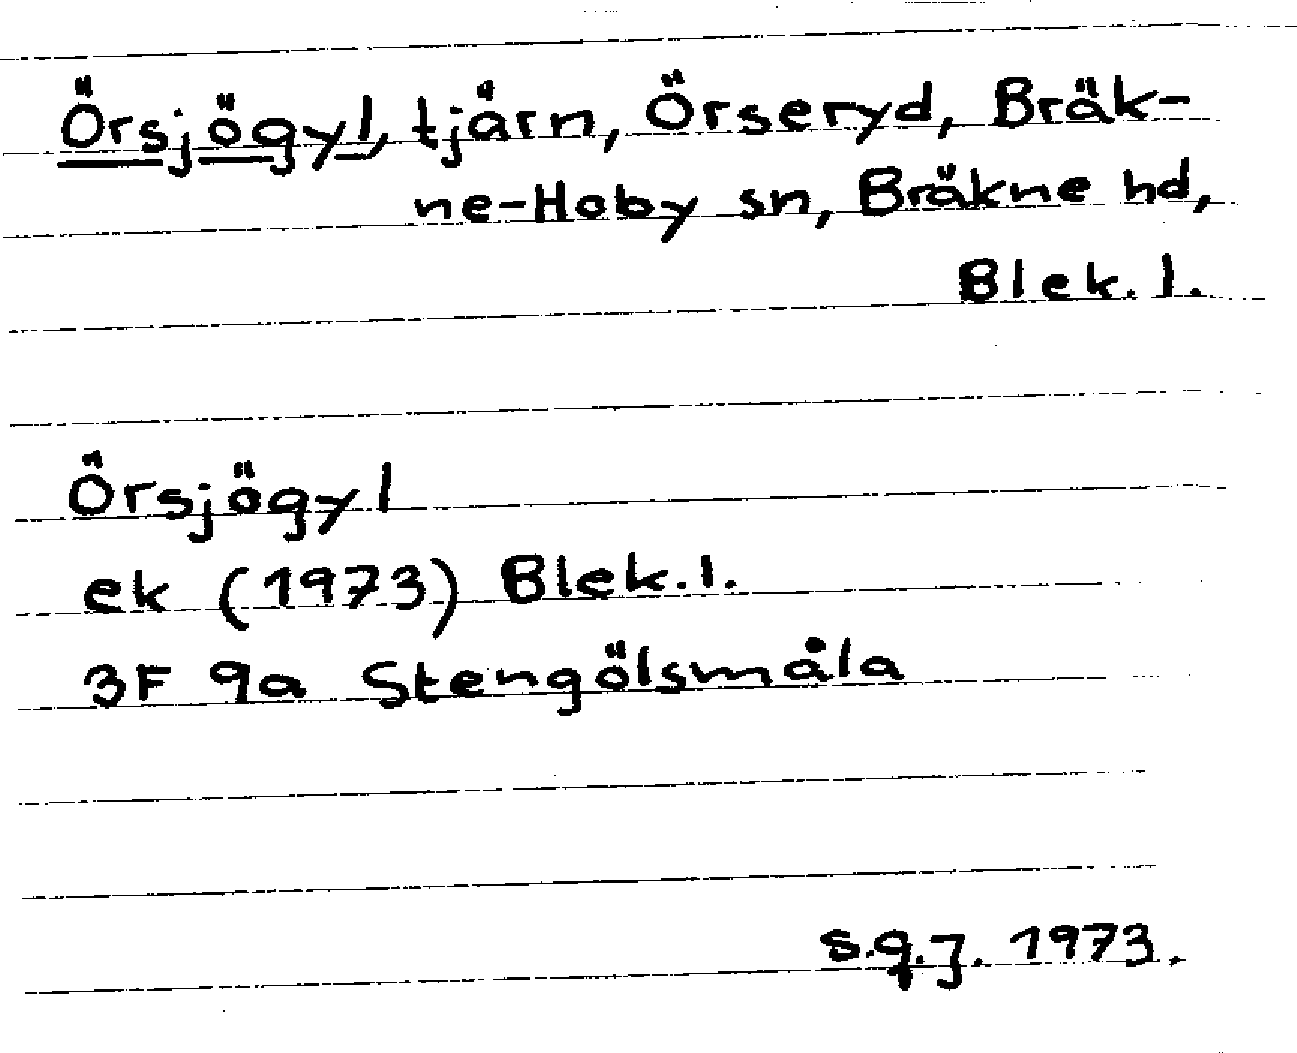 Örsjögyl, tjärn, Örseryd, Bräk-
ne-Hoby sn, Bräkne hd,
Blek. l.
Örsjögyl
ek (1973) Blek. l.
3F 9a Stengölsmåla
S.G.J. 1973.